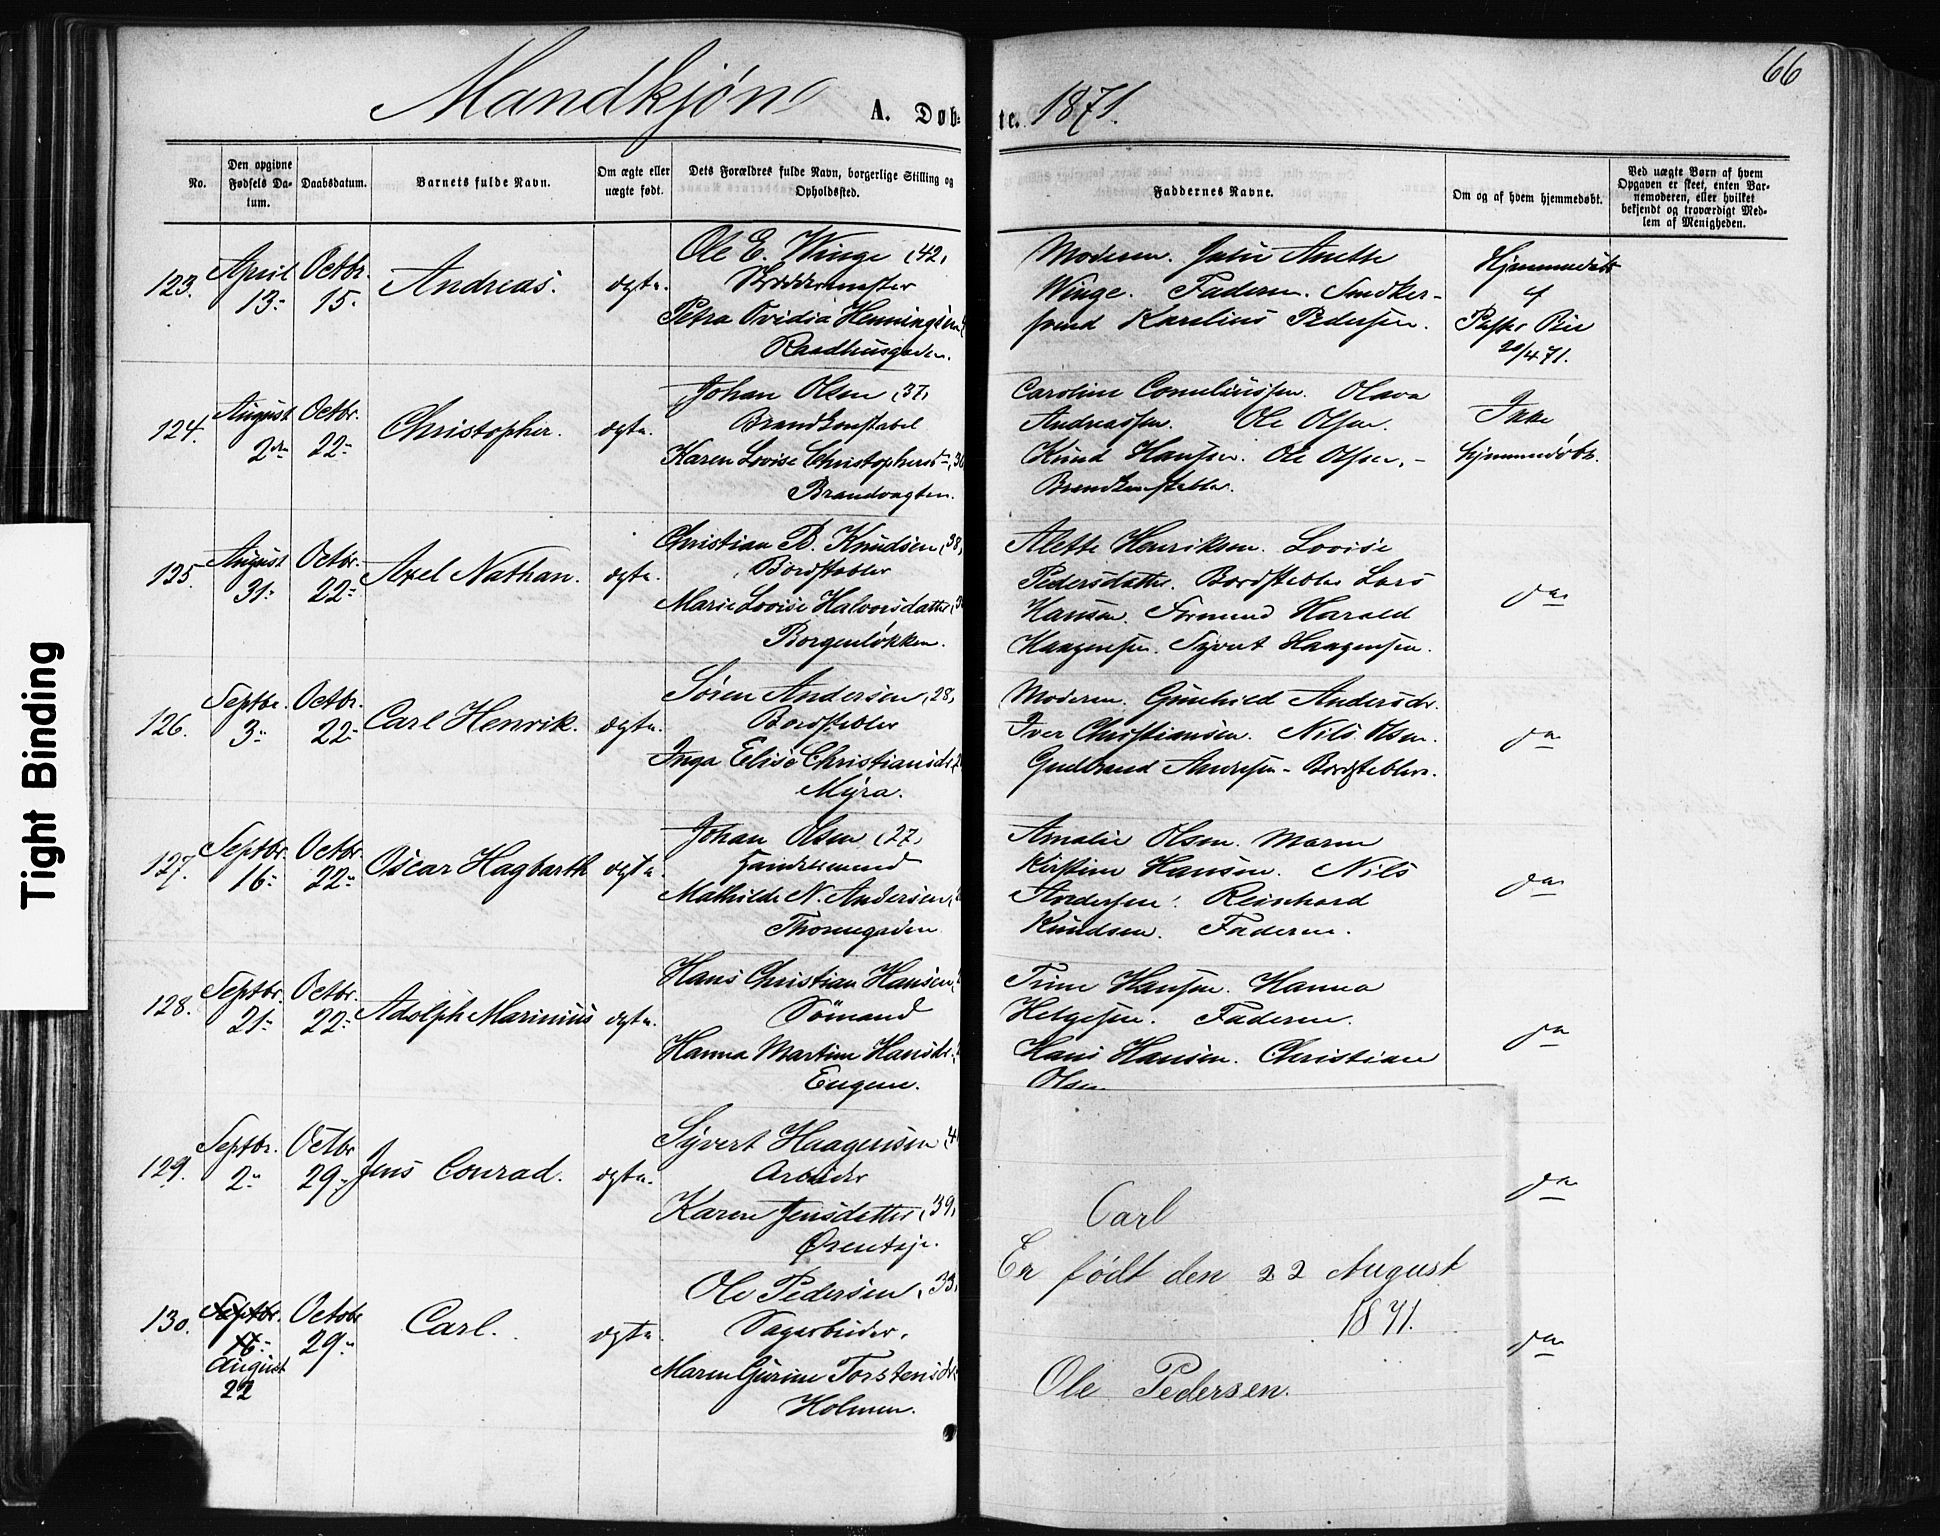 Mandkjøn
A. Døb-
te. 1871.
66
Tight Binding
No.
Den opgivne
Fødsels Da-
tum.
Daabsdatum.
Barnets fulde Navn.
Om ægte eller
uægte født.
Dets Forældres fulde Navn, borgerlige Stilling og
Opholdssted.
Faddernes Navne.
Om og af hvem hjemmedøbt.
Ved uægte Børn af hvem
Opgaven er skeet, enten Bar-
nemoderen, eller hvilket
bekjendt og troværdigt Med-
lem af Menigheden.
123. April 13. Octbr. 15. Andreas. ægte.
Ole E. Winge, 42,
Petra Ovidia Henningsen
Raadhusgaden.
Moderen. Julie Anette
Winge. Faderen. Snedker-
svend Karelius Pedersen.
Hjemmedøbt
af
Pastor Bie
20/4 71.
124. August 2den Octbr. 22. Christopher. ægte.
Johan Olsen, 37,
Brandkonstabel
Karen Lovise Christophersd.
Brandvagten.
Caroline Corneliussen. Olava
Andreassen. Ole Olsen.
Knud Hansen. Ole Olsen, -
Brandkonstabler.
Ikke
hjemmedøbt.
125. August 31. Octbr. 22. Axel Nathan. ægte.
Christian B. Knudsen, 38,
Bordstabler
Marie Lovise Halvorsdatter,
Borgenløkken.
Alette Henriksen. Lovise
Pedersdatter. Bordstabler Lars
Hansen. Formand Harald
Haagensen. Syvert Haagensen.
do
126. Septbr. 3. Octbr. 22. Carl Henrik. ægte.
Søren Andersen, 28,
Bordstabler
Inga Elise Christiansd.
Myra.
Moderen. Gunhild Andersdr.
Iver Christiansen. Nils Olsen.
Gudbrand Andresen - Bordstabler.
do
127. Septbr. 16. Octbr. 22. Oscar Hagbarth ægte.
Johan Olsen, 27,
Handelsmand
Mathilde N. Andersen,
Thornegaden
Amalie Olsen. Maren
Kirstine Hansen. Nils
Andersen. Reinhard
Knudsen. Faderen.
do
128. Septbr. 21. Octbr. 22. Adolph Marinius ægte.
Hans Christian Hansen,
Sømand
Hanna Martine Hansdr.
Engene.
Trine Hansen. Hanna
Helgesen. Faderen.
Hans Hansen. Christian
Olsen
do
129. Septbr. 2. Octbr 29. Jens Conrad. ægte.
Syvert Haagensen
Arbeider
Karen Jensdatter, 39,
Ørentøje.
do
130. Septbr. 16. August 22 Octobr 29. Carl. ægte.
Ole Pedersen, 33,
Sagarbeider,
Maren Gurine Torstensdr
Holmen.
do
Carl
Er født den 22 August
1871.
Ole Pedersen.